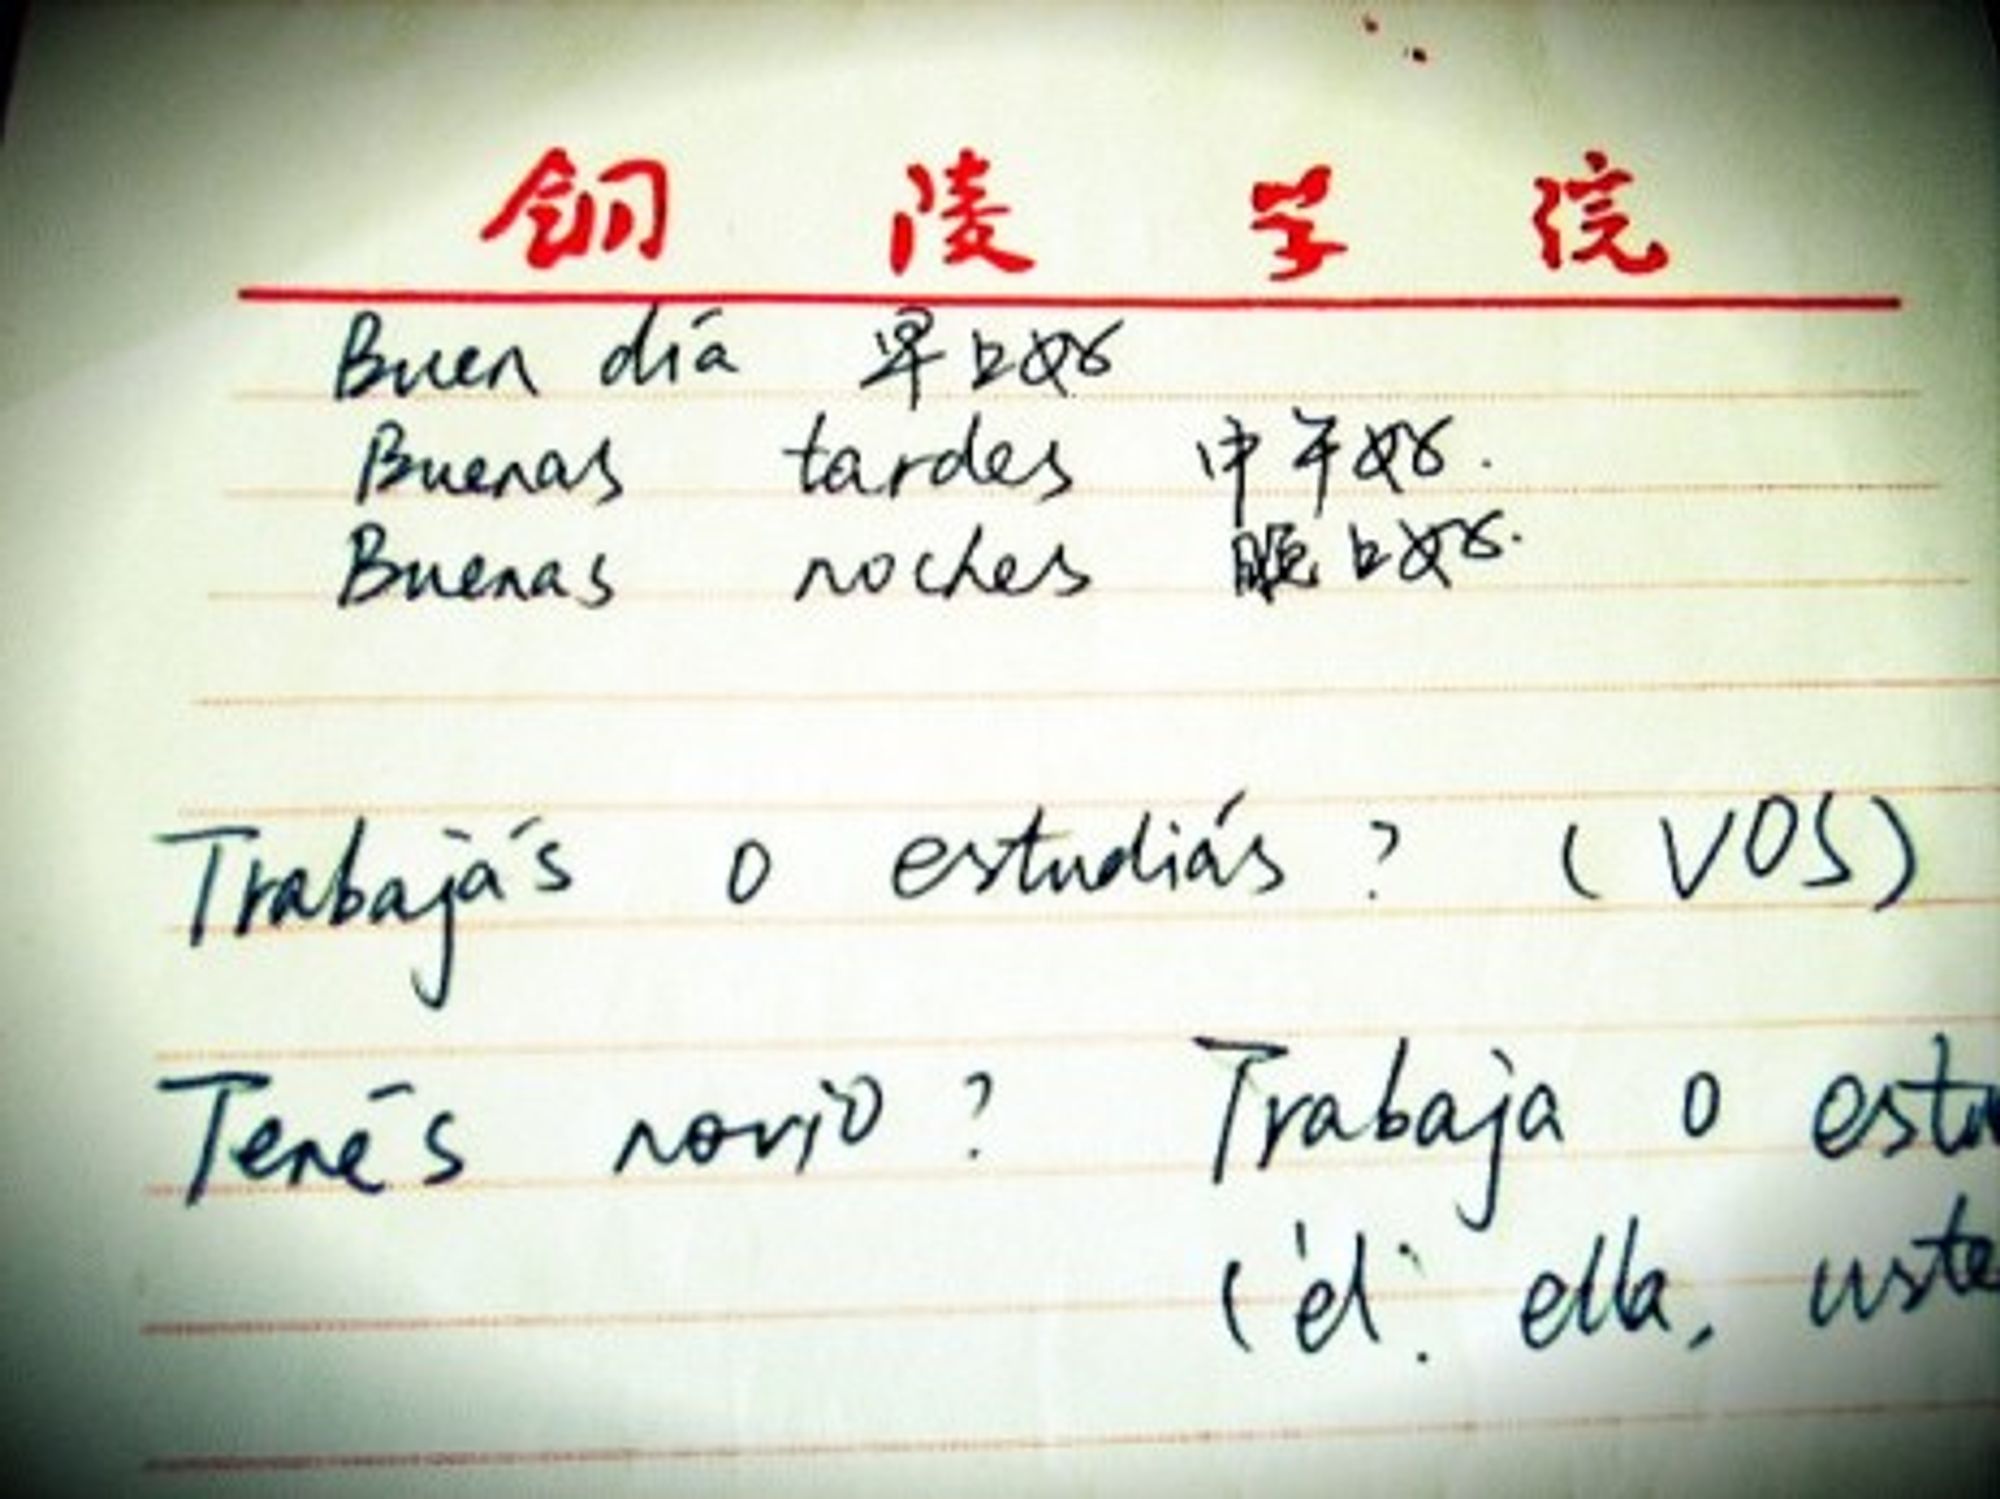 铜陵学院
Buen día 早上好
Buenas tardes 中午好.
Buenas noches 晚上好.
Trabajás o estudiás? (VOS)
Tenés novio? Trabaja o estu
(él. ella, uste